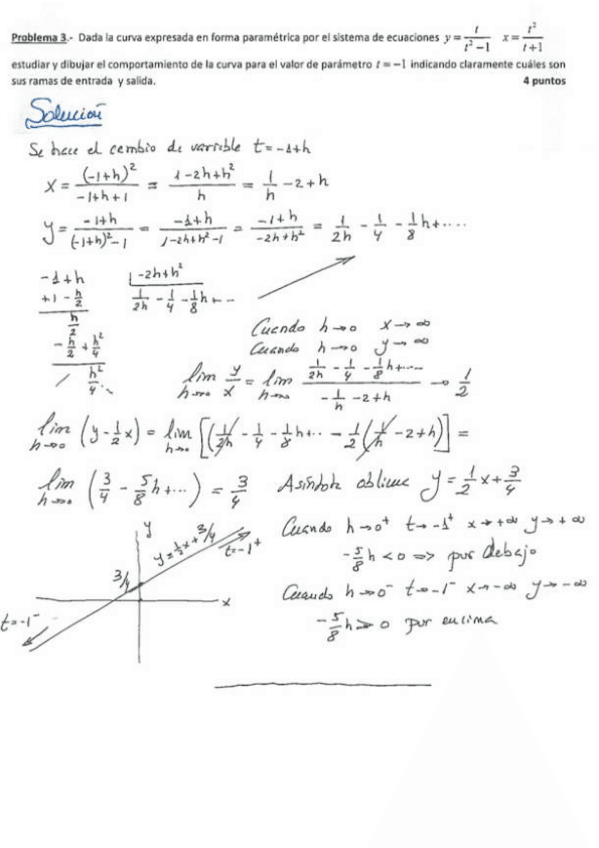 Problema 3.- Dada la curva expresada en forma paramétrica por el sistema de ecuaciones y = t/(t²−1)  x = t²/(t+1)
estudiar y dibujar el comportamiento de la curva para el valor de parámetro t = −1 indicando claramente cuáles son
sus ramas de entrada y salida. 4 puntos
Solución
Se hace el cambio de variable t = -1+h
x = (-1+h)²/(-1+h+1) = (1-2h+h²)/h = 1/h - 2 + h
y = (-1+h)/((-1+h)²-1) = (-1+h)/(1-2h+h²-1) = (-1+h)/(-2h+h²) = 1/2h - 1/4 - 1/8h + ....
-1+h | -2h+h²
+1 - h/2  1/2h - 1/4 - 1/8h + ...
h/2
-h/2 + h²/4
/ h²/4 ..
Cuando h→0 x→∞
Cuando h→0 y→∞
lim h→0 y/x = lim h→0 (1/2h - 1/4 - 1/8h + ....)/(-1/h - 2 + h) → 1/2
lim h→0 (y - 1/2x) = lim h→0 [(1/2h - 1/4 - 1/8h + .. - 1/2(1/h - 2 + h)] =
lim h→0 (3/4 - 5/8h + ...) = 3/4 Asíntota oblicua y = 1/2x + 3/4
Cuando h→0⁺ t→-1⁺ x→+∞ y→+∞
-5/8h < 0 => por debajo
Cuando h→0⁻ t→-1⁻ x→-∞ y→-∞
-5/8h > 0 por encima
y
y = 1/2x + 3/4
t=-1⁺
3/4
x
t=-1⁻